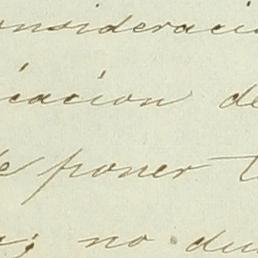 onsideració
icacion de
de poner t
; no du